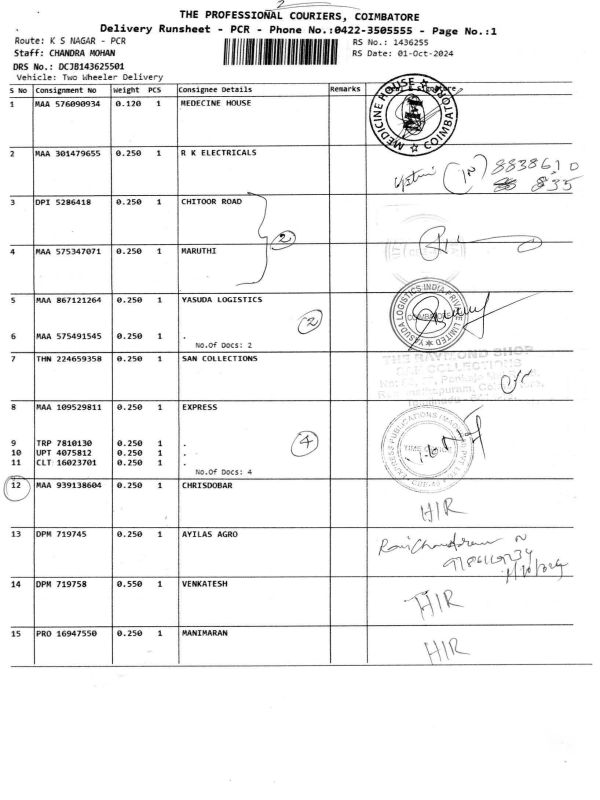 2
THE PROFESSIONAL COURIERS, COIMBATORE
Delivery Runsheet - PCR - Phone No.:0422-3505555 - Page No.:1
Route: K S NAGAR - PCR RS No.: 1436255
Staff: CHANDRA MOHAN RS Date: 01-Oct-2024
DRS No.: DCJB143625501
Vehicle: Two Wheeler Delivery
S No Consignment No Weight PCS Consignee Details Remarks
1 MAA 576090934 0.120 1 MEDECINE HOUSE
MEDICINE HOUSE COIMBATORE
2 MAA 301479655 0.250 1 R K ELECTRICALS
8838610
835
3 DPI 5286418 0.250 1 CHITOOR ROAD
2
4 MAA 575347071 0.250 1 MARUTHI
5 MAA 867121264 0.250 1 YASUDA LOGISTICS
YASUDA LOGISTICS INDIA PRIVATE LIMITED
2
6 MAA 575491545 .
No.Of Docs: 2
7 THN 224659358 0.250 1 SAN COLLECTIONS
THE RAYMOND SHOP
SAN COLLECTIONS
8 MAA 109529811 0.250 1 EXPRESS
EXPRESS PUBLICATIONS
4
9 TRP 7810130 .
10 UPT 4075812 .
11 CLT 16023701 .
No.Of Docs: 4
12 MAA 939138604 0.250 1 CHRISDOBAR
HIR
13 DPM 719745 0.250 1 AYILAS AGRO
14 DPM 719758 0.550 1 VENKATESH
HIR
15 PRO 16947550 0.250 1 MANIMARAN
HIR